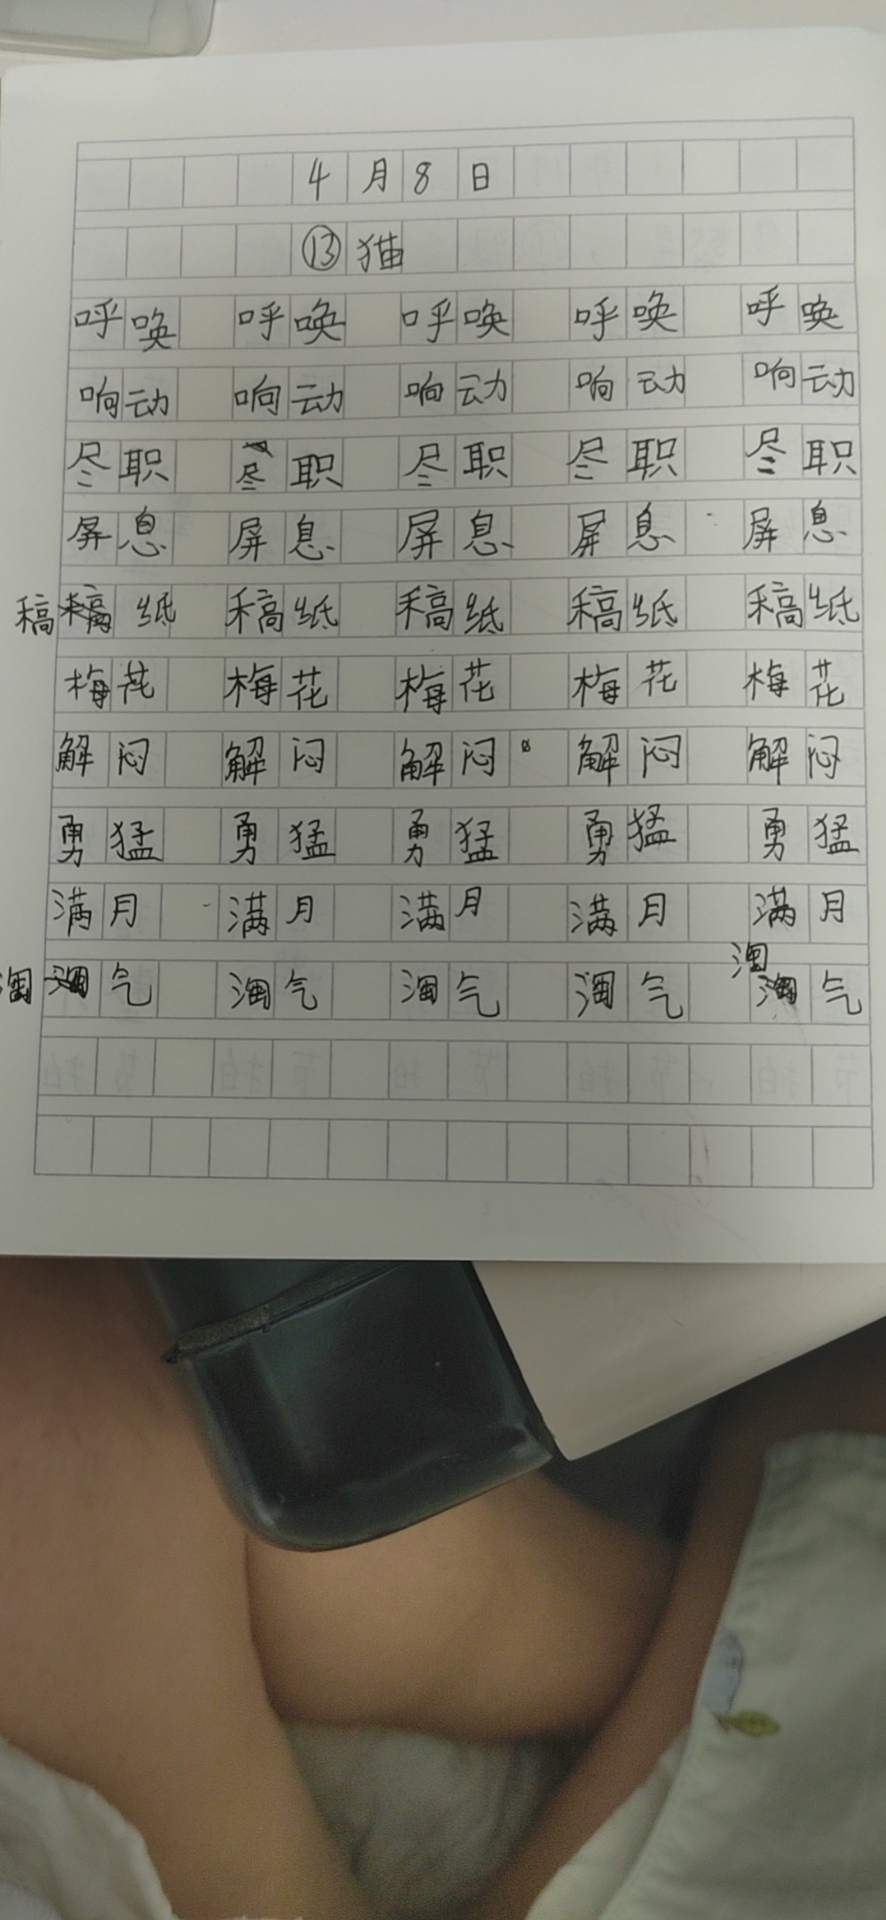 4月8日
⑬猫
呼唤 呼唤 呼唤 呼唤 呼唤
响动 响动 响动 响动 响动
尽职 尽职 尽职 尽职 尽职
屏息 屏息 屏息 屏息 屏息
稿纸 稿纸 稿纸 稿纸 稿纸
梅花 梅花 梅花 梅花 梅花
解闷 解闷 解闷 解闷 解闷
勇猛 勇猛 勇猛 勇猛 勇猛
满月 满月 满月 满月 满月
淘气 淘气 淘气 淘气 淘气